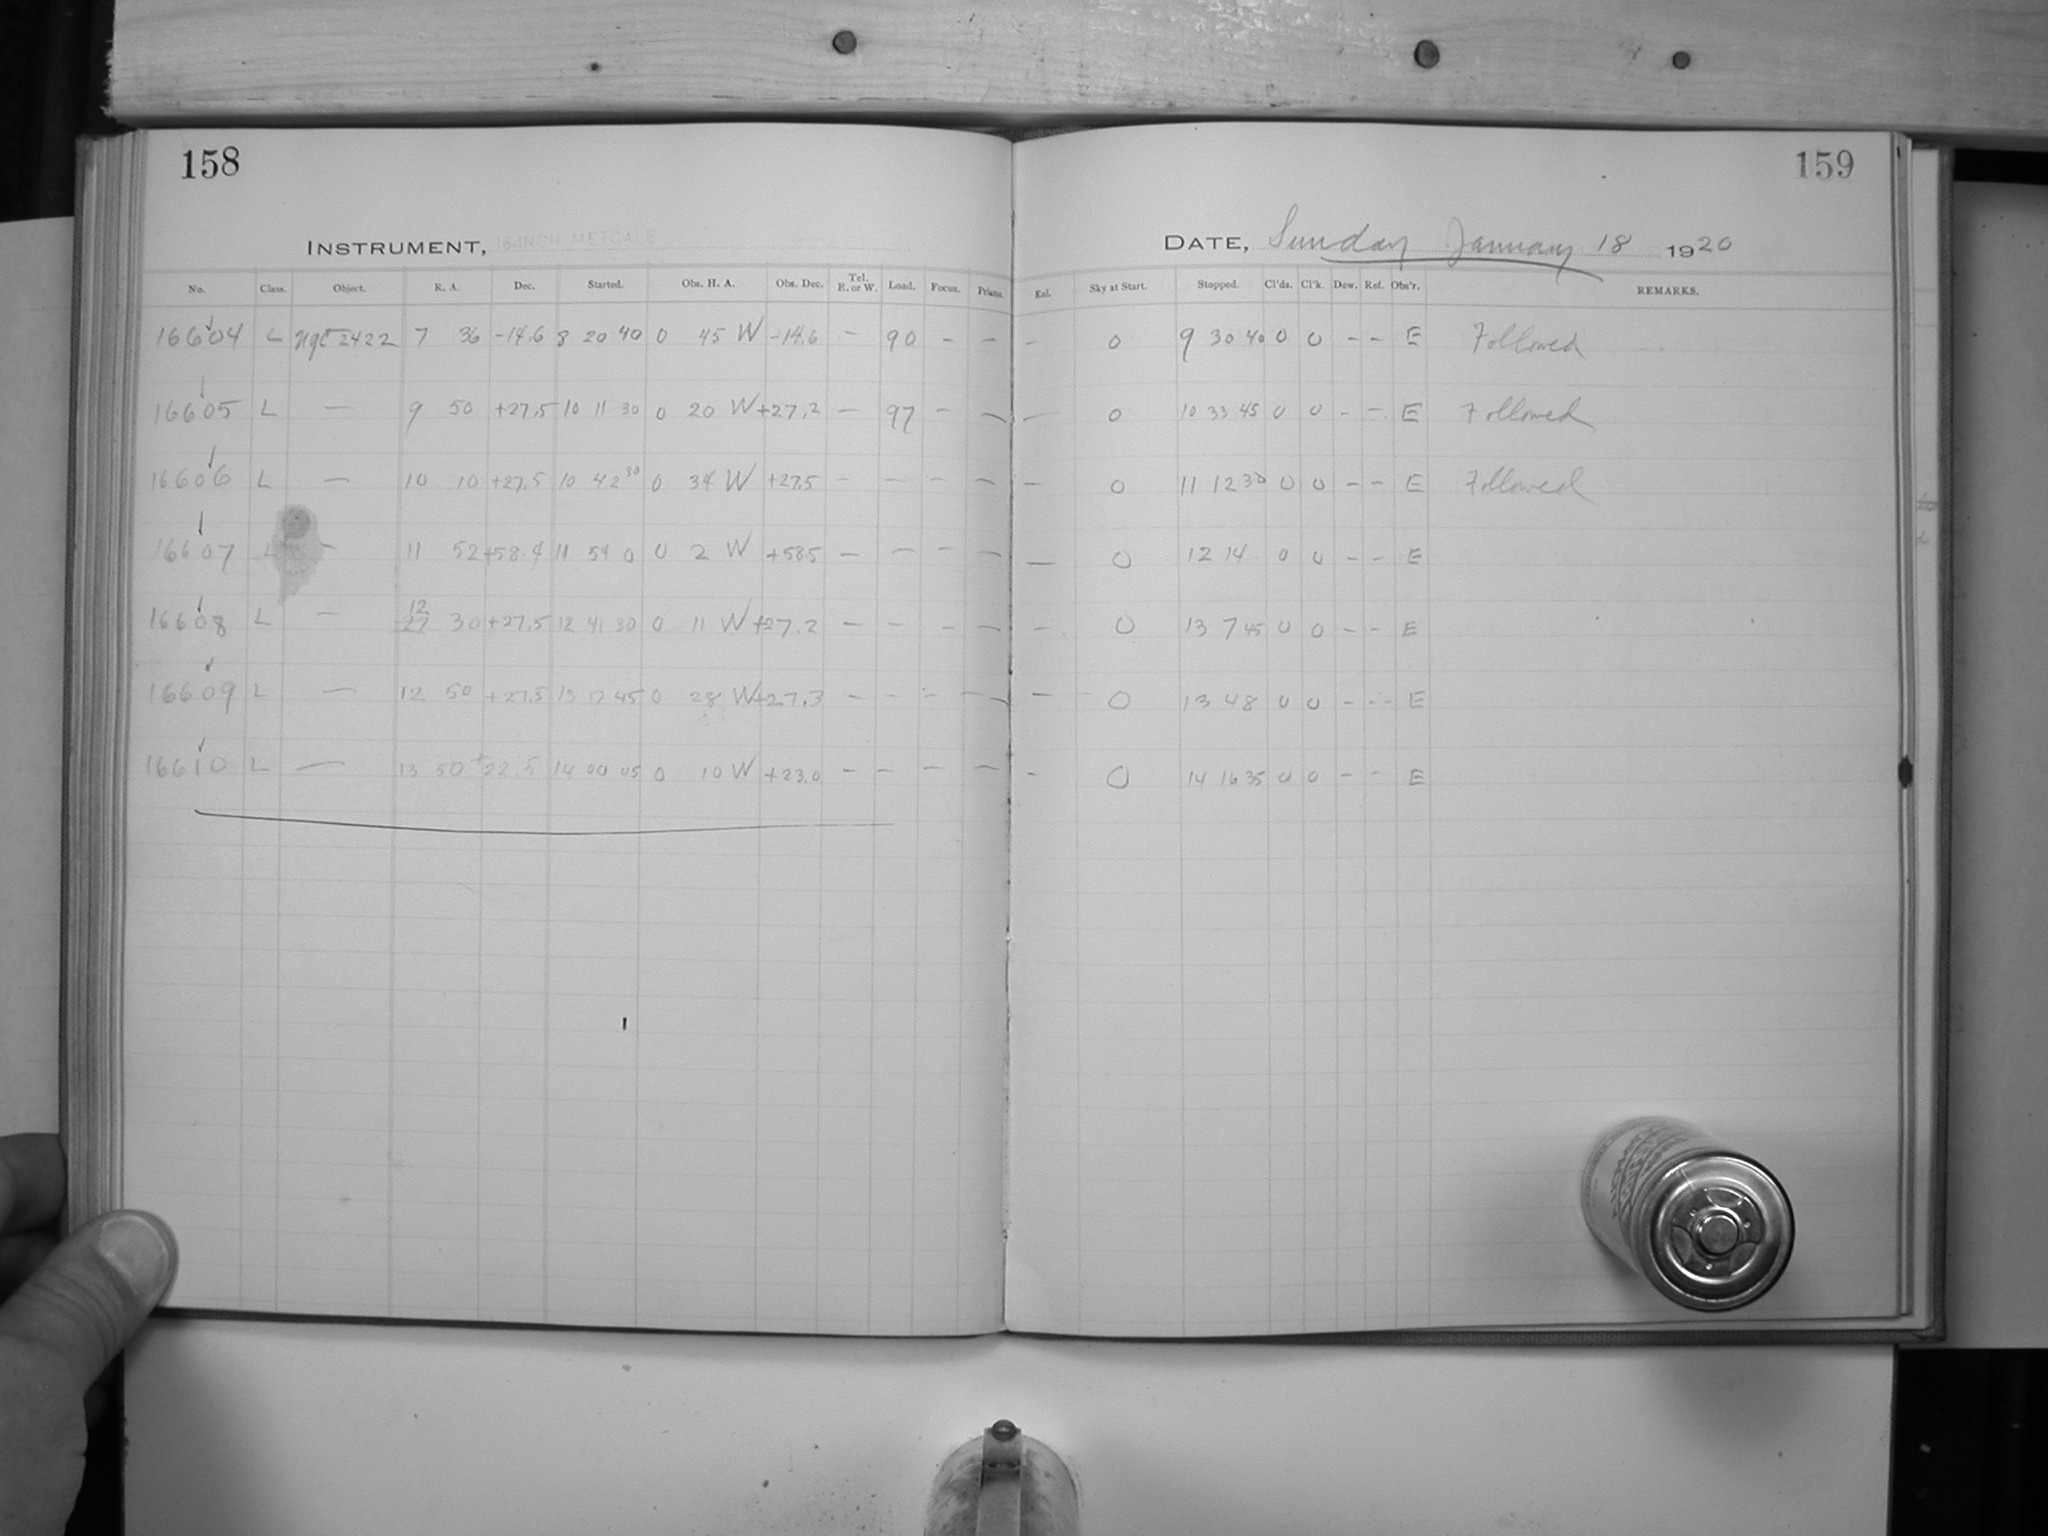 158
159
INSTRUMENT, 16-INCH METCALF
DATE, Sunday January 18 1920
No. Class. Object. R. A. Dec. Started. Obs. H. A. Obs. Dec. Tel. E. or W. Load. Focus. Prisms. Exl. Sky at Start. Stopped. Cl'ds. Cl'k. Dew. Ref. Obs'r. REMARKS.
16604 L NGC 2422 7 36 -14.6 8 20 40 0 45 W -14.6 — 90 - - - 0 9 30 40 0 0 - - E Followed
16605 L — 9 50 +27.5 10 11 30 0 20 W +27.2 — 97 - - — 0 10 33 45 0 0 - - E Followed
16606 L — 10 10 +27.5 10 42 30 0 34 W +27.5 - - - - — 0 11 12 30 0 0 - - E Followed
16607 L — 11 52 +58.4 11 54 0 0 2 W +58.5 — - - - — 0 12 14 0 0 - - E
16608 L — 12 27 30 +27.5 12 41 30 0 11 W +27.2 — - - - - 0 13 7 45 0 0 - - E
16609 L — 12 50 +27.5 13 17 45 0 28 W +27.3 - - - - - 0 13 48 0 0 - - E
16610 L — 13 50 +22.5 14 00 45 0 10 W +23.0 - - - - - 0 14 16 35 0 0 - - E